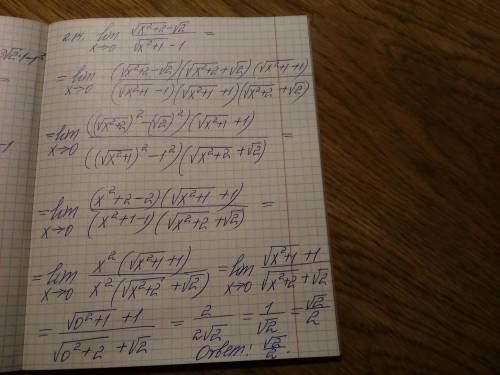 2.14. lim x→0 (√(x²+2) − √2)/(√(x²+1) − 1) =
= lim x→0 ((√(x²+2) − √2)(√(x²+2) + √2)(√(x²+1) + 1))/((√(x²+1) − 1)(√(x²+1) + 1)(√(x²+2) + √2))
= lim x→0 (((√(x²+2))² − (√2)²)(√(x²+1) + 1))/(((√(x²+1))² − 1²)(√(x²+2) + √2)) =
= lim x→0 ((x²+2−2)(√(x²+1) + 1))/((x²+1−1)(√(x²+2) + √2)) =
= lim x→0 (x²(√(x²+1) + 1))/(x²(√(x²+2) + √2)) = lim x→0 (√(x²+1) + 1)/(√(x²+2) + √2)
= (√(0²+1) + 1)/(√(0²+2) + √2) = 2/(2√2) = 1/√2 = √2/2
Ответ: √2/2.